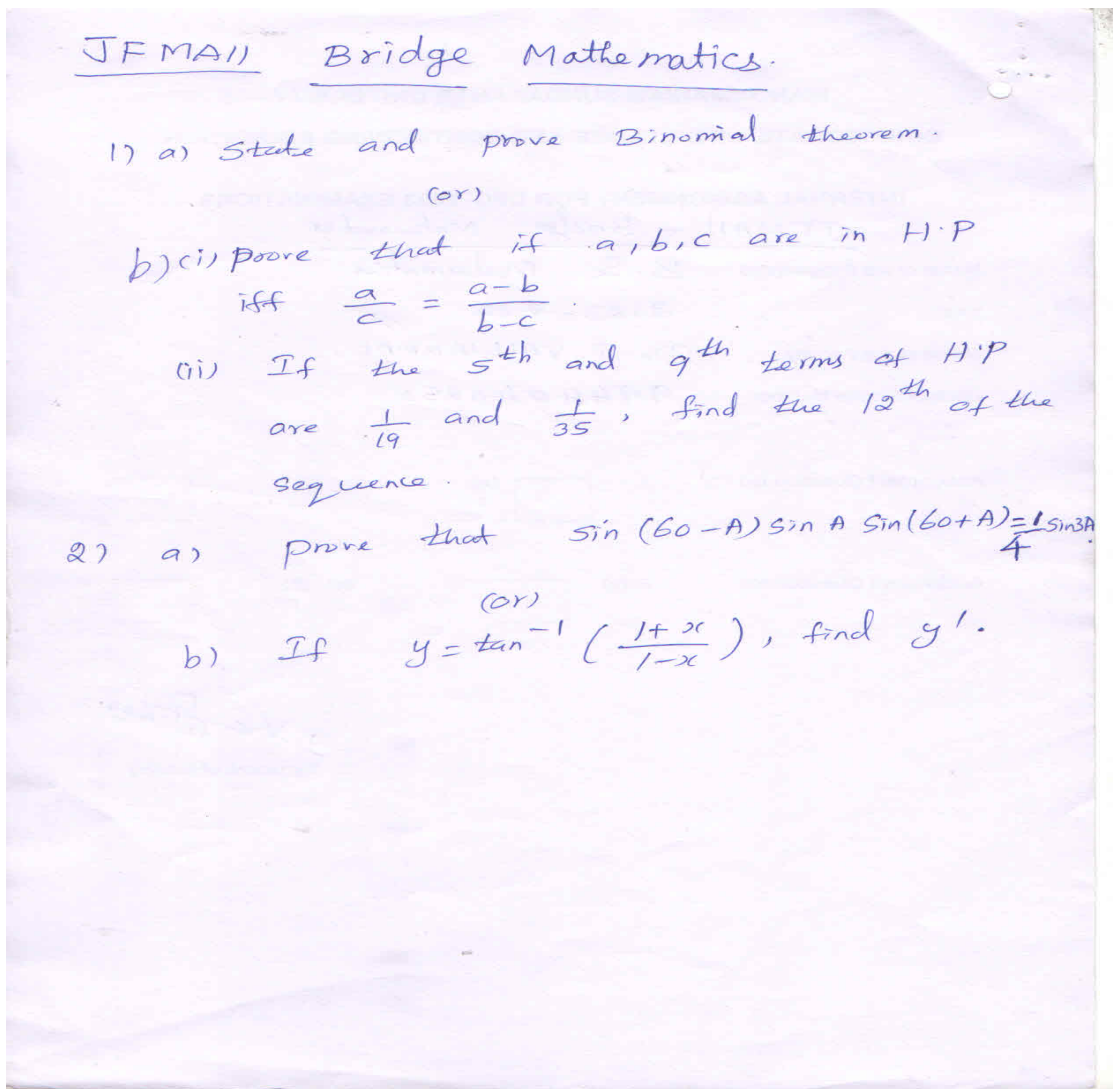 JFMA11 Bridge Mathematics.
1) a) State and prove Binomial theorem.
(or)
b)(i) Prove that if a, b, c are in H.P
iff a/c = a-b/b-c.
(ii) If the 5th and 9th terms of H.P
are 1/19 and 1/35, find the 12th of the
sequence.
2) a) prove that Sin (60-A) Sin A Sin(60+A)=1/4 Sin3A.
(or)
b) If y = tan⁻¹ (1+x/1-x), find y'.